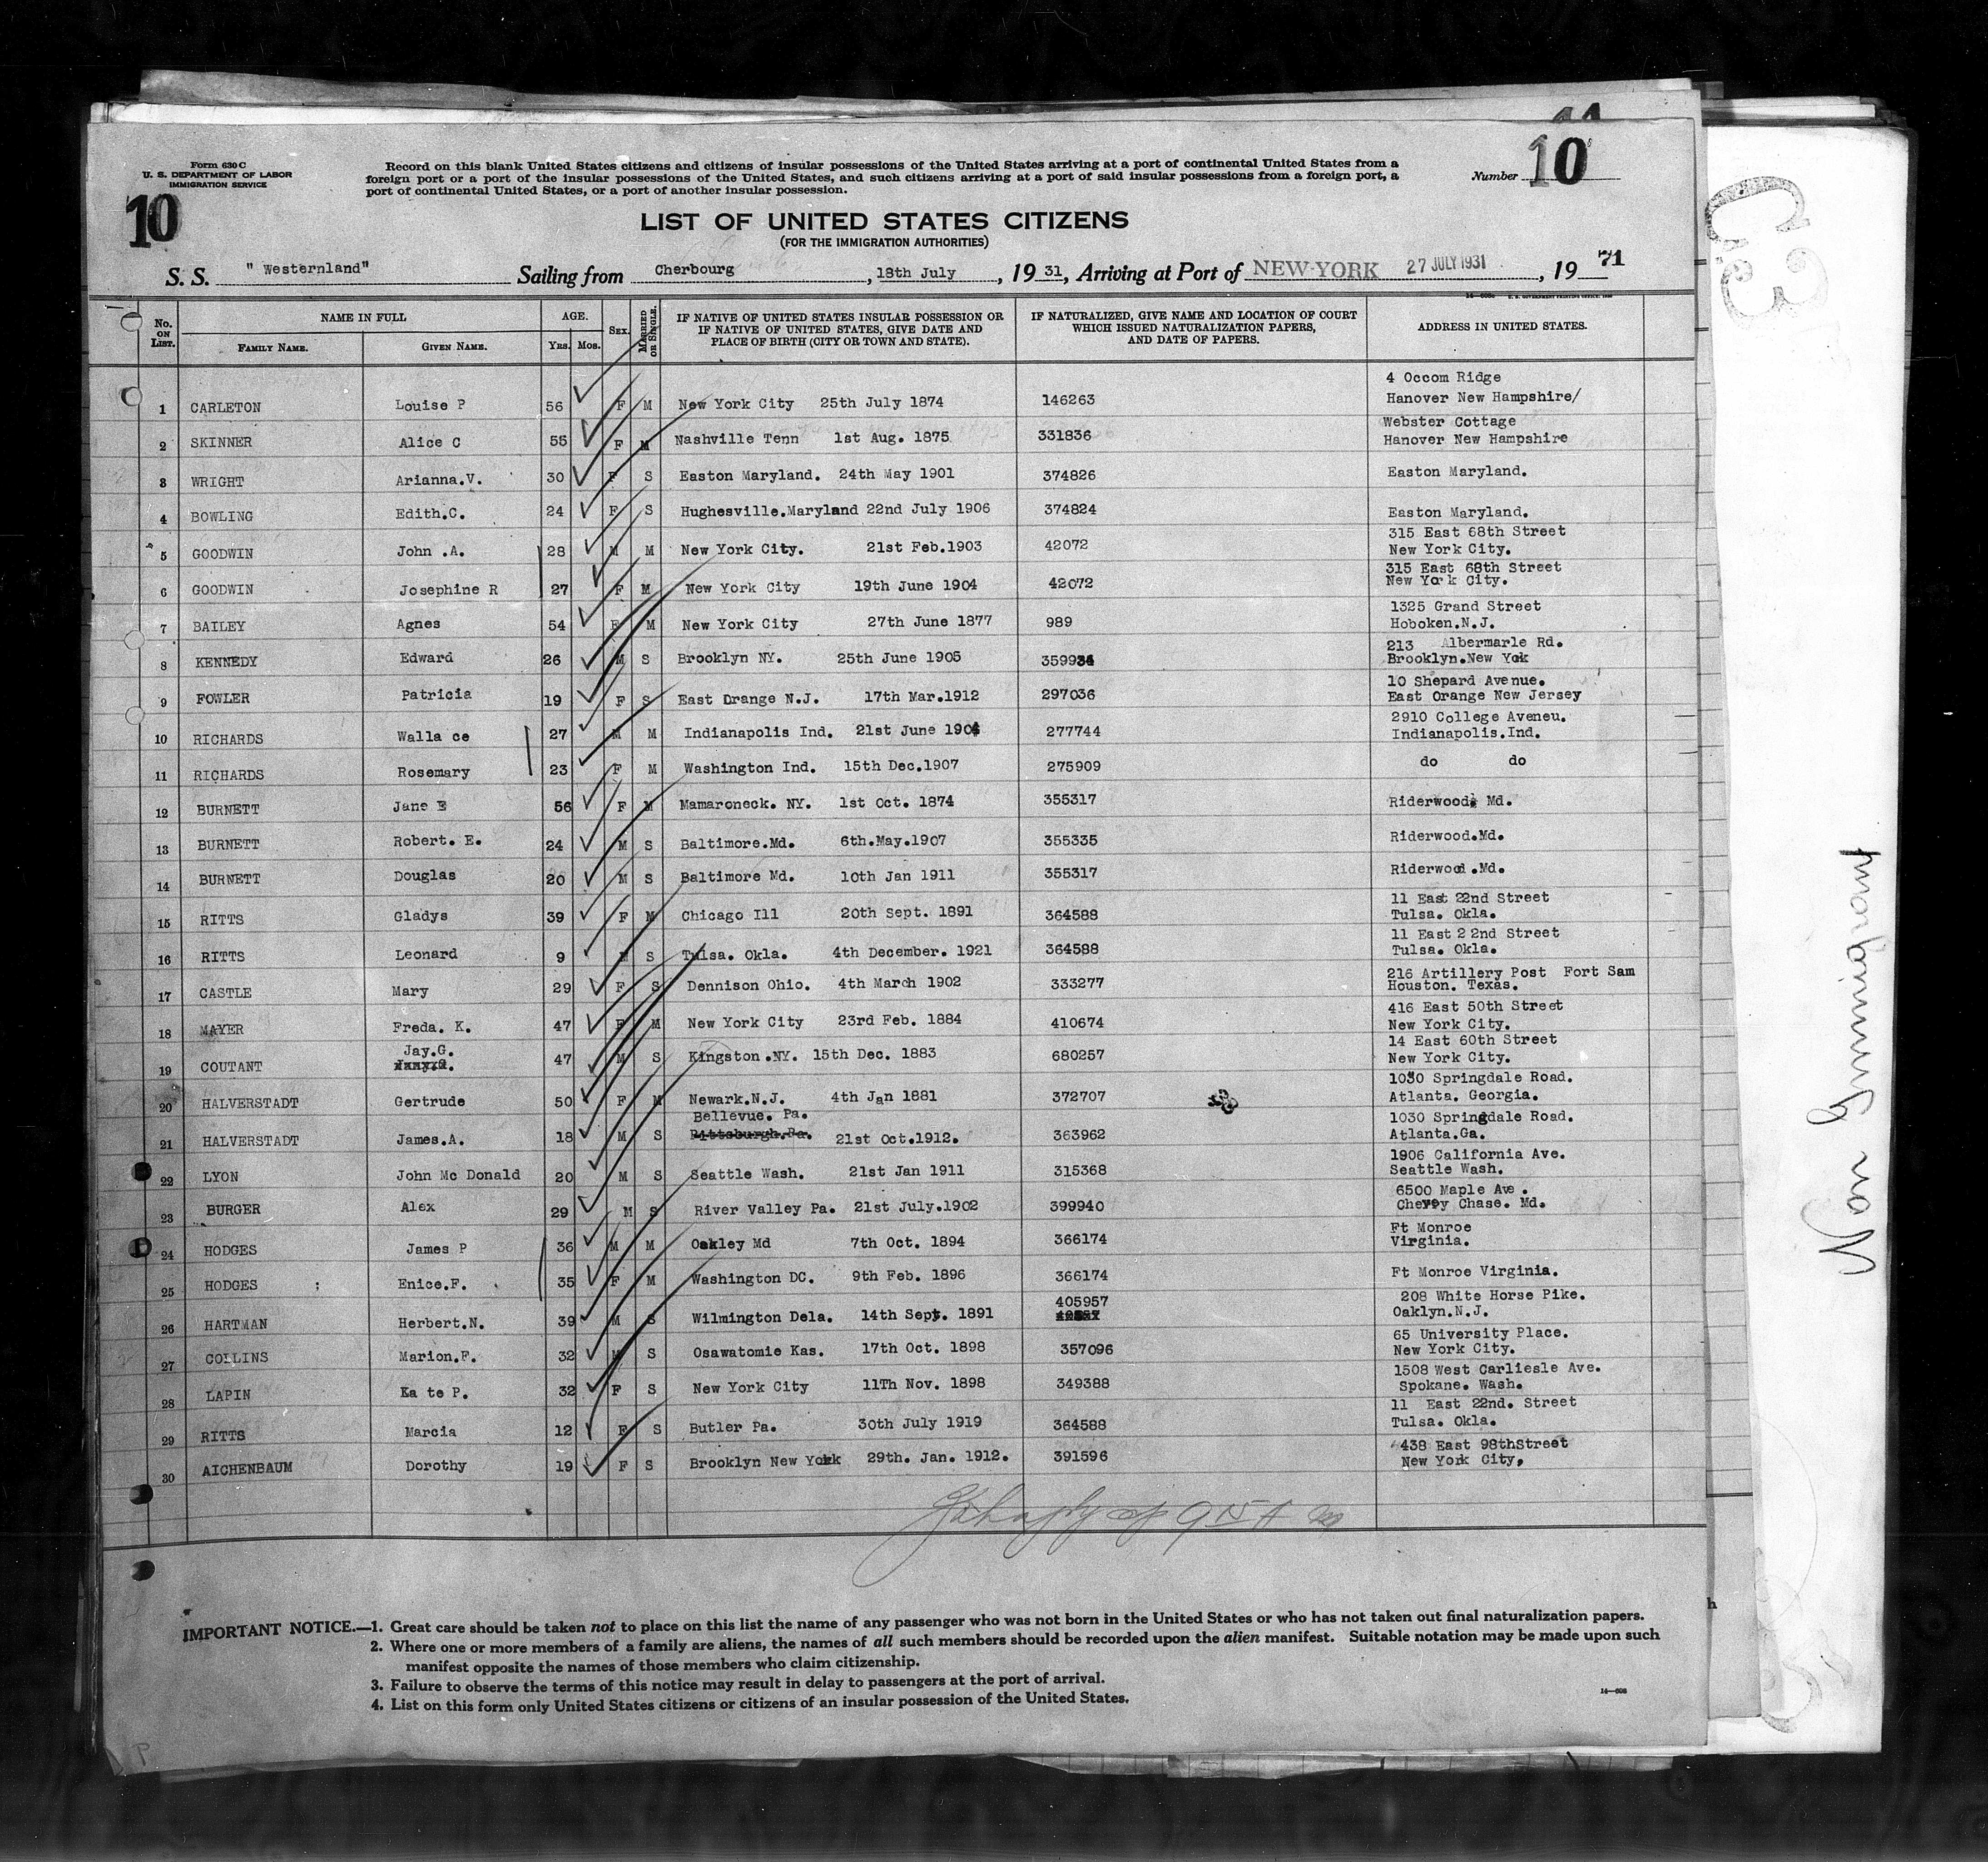 Form 630 C
U. S. DEPARTMENT OF LABOR
IMMIGRATION SERVICE
10
Record on this blank United States citizens and citizens of insular possessions of the United States arriving at a port of continental United States from a
foreign port or a port of the insular possessions of the United States, and such citizens arriving at a port of said insular possessions from a foreign port, a
port of continental United States, or a port of another insular possession.
Number 10
LIST OF UNITED STATES CITIZENS
(FOR THE IMMIGRATION AUTHORITIES)
S. S. "Westernland" Sailing from Cherbourg, 18th July, 19 31, Arriving at Port of NEW-YORK 27 JULY 1931, 19 71
No. ON LIST. NAME IN FULL FAMILY NAME. GIVEN NAME. AGE. YRS. MOS. SEX. MARRIED OR SINGLE. IF NATIVE OF UNITED STATES INSULAR POSSESSION OR IF NATIVE OF UNITED STATES, GIVE DATE AND PLACE OF BIRTH (CITY OR TOWN AND STATE). IF NATURALIZED, GIVE NAME AND LOCATION OF COURT WHICH ISSUED NATURALIZATION PAPERS, AND DATE OF PAPERS. ADDRESS IN UNITED STATES.
1 CARLETON Louise P 56 F M New York City 25th July 1874 146263 4 Occom Ridge Hanover New Hampshire/
2 SKINNER Alice C 55 F M Nashville Tenn 1st Aug. 1875 331836 Webster Cottage Hanover New Hampshire
3 WRIGHT Arianna.V. 30 F S Easton Maryland. 24th May 1901 374826 Easton Maryland.
4 BOWLING Edith.C. 24 F S Hughesville.Maryland 22nd July 1906 374824 Easton Maryland.
5 GOODWIN John .A. 28 M M New York City. 21st Feb.1903 42072 315 East 68th Street New York City.
6 GOODWIN Josephine R 27 F M New York City 19th June 1904 42072 315 East 68th Street New York City.
7 BAILEY Agnes 54 F M New York City 27th June 1877 989 1325 Grand Street Hoboken.N.J.
8 KENNEDY Edward 26 M S Brooklyn NY. 25th June 1905 359934 213 Albermarle Rd. Brooklyn.New Yok
9 FOWLER Patricia 19 F S East Orange N.J. 17th Mar.1912 297036 10 Shepard Avenue. East Orange New Jersey
10 RICHARDS Walla ce 27 M M Indianapolis Ind. 21st June 1904 277744 2910 College Aveneu. Indianapolis.Ind.
11 RICHARDS Rosemary 23 F M Washington Ind. 15th Dec.1907 275909 do do
12 BURNETT Jane E 56 F M Mamaroneck. NY. 1st Oct. 1874 355317 Riderwood. Md.
13 BURNETT Robert. E. 24 M S Baltimore.Md. 6th.May.1907 355335 Riderwood.Md.
14 BURNETT Douglas 20 M S Baltimore Md. 10th Jan 1911 355317 Riderwood.Md.
15 RITTS Gladys 39 F M Chicago Ill 20th Sept. 1891 364588 11 East 22nd Street Tulsa. Okla.
16 RITTS Leonard 9 M S Tulsa. Okla. 4th December. 1921 364588 11 East 2 2nd Street Tulsa. Okla.
17 CASTLE Mary 29 F S Dennison Ohio. 4th March 1902 333277 216 Artillery Post Fort Sam Houston. Texas.
18 MAYER Freda. K. 47 F M New York City 23rd Feb. 1884 410674 416 East 50th Street New York City.
19 COUTANT Jay.G. 47 M S Kingston.NY. 15th Dec. 1883 680257 14 East 60th Street New York City.
20 HALVERSTADT Gertrude 50 F M Newark.N.J. 4th Jan 1881 372707 1030 Springdale Road. Atlanta. Georgia.
21 HALVERSTADT James.A. 18 M S Bellevue. Pa. Pittsburgh.Pa. 21st Oct.1912. 363962 1030 Springdale Road. Atlanta.Ga.
22 LYON John Mc Donald 20 M S Seattle Wash. 21st Jan 1911 315368 1906 California Ave. Seattle Wash.
23 BURGER Alex 29 M S River Valley Pa. 21st July.1902 399940 6500 Maple Ave . Chevy Chase. Md.
24 HODGES James P 36 M M Oakley Md 7th Oct. 1894 366174 Ft Monroe Virginia.
25 HODGES ; Enice.F. 35 F M Washington DC. 9th Feb. 1896 366174 Ft Monroe Virginia.
26 HARTMAN Herbert.N. 39 M S Wilmington Dela. 14th Sept. 1891 405957 208 White Horse Pike. Oaklyn.N.J.
27 COLLINS Marion.F. 32 M S Osawatomie Kas. 17th Oct. 1898 357096 65 University Place. New York City.
28 LAPIN Ka te P. 32 F S New York City 11Th Nov. 1898 349388 1508 West Carliesle Ave. Spokane. Wash.
29 RITTS Marcia 12 F S Butler Pa. 30th July 1919 364588 11 East 22nd. Street Tulsa. Okla.
30 AICHENBAUM Dorothy 19 F S Brooklyn New York 29th. Jan. 1912. 391596 438 East 98thStreet New York City,
IMPORTANT NOTICE.—1. Great care should be taken not to place on this list the name of any passenger who was not born in the United States or who has not taken out final naturalization papers.
2. Where one or more members of a family are aliens, the names of all such members should be recorded upon the alien manifest. Suitable notation may be made upon such
manifest opposite the names of those members who claim citizenship.
3. Failure to observe the terms of this notice may result in delay to passengers at the port of arrival.
4. List on this form only United States citizens or citizens of an insular possession of the United States.
Non Immigrant